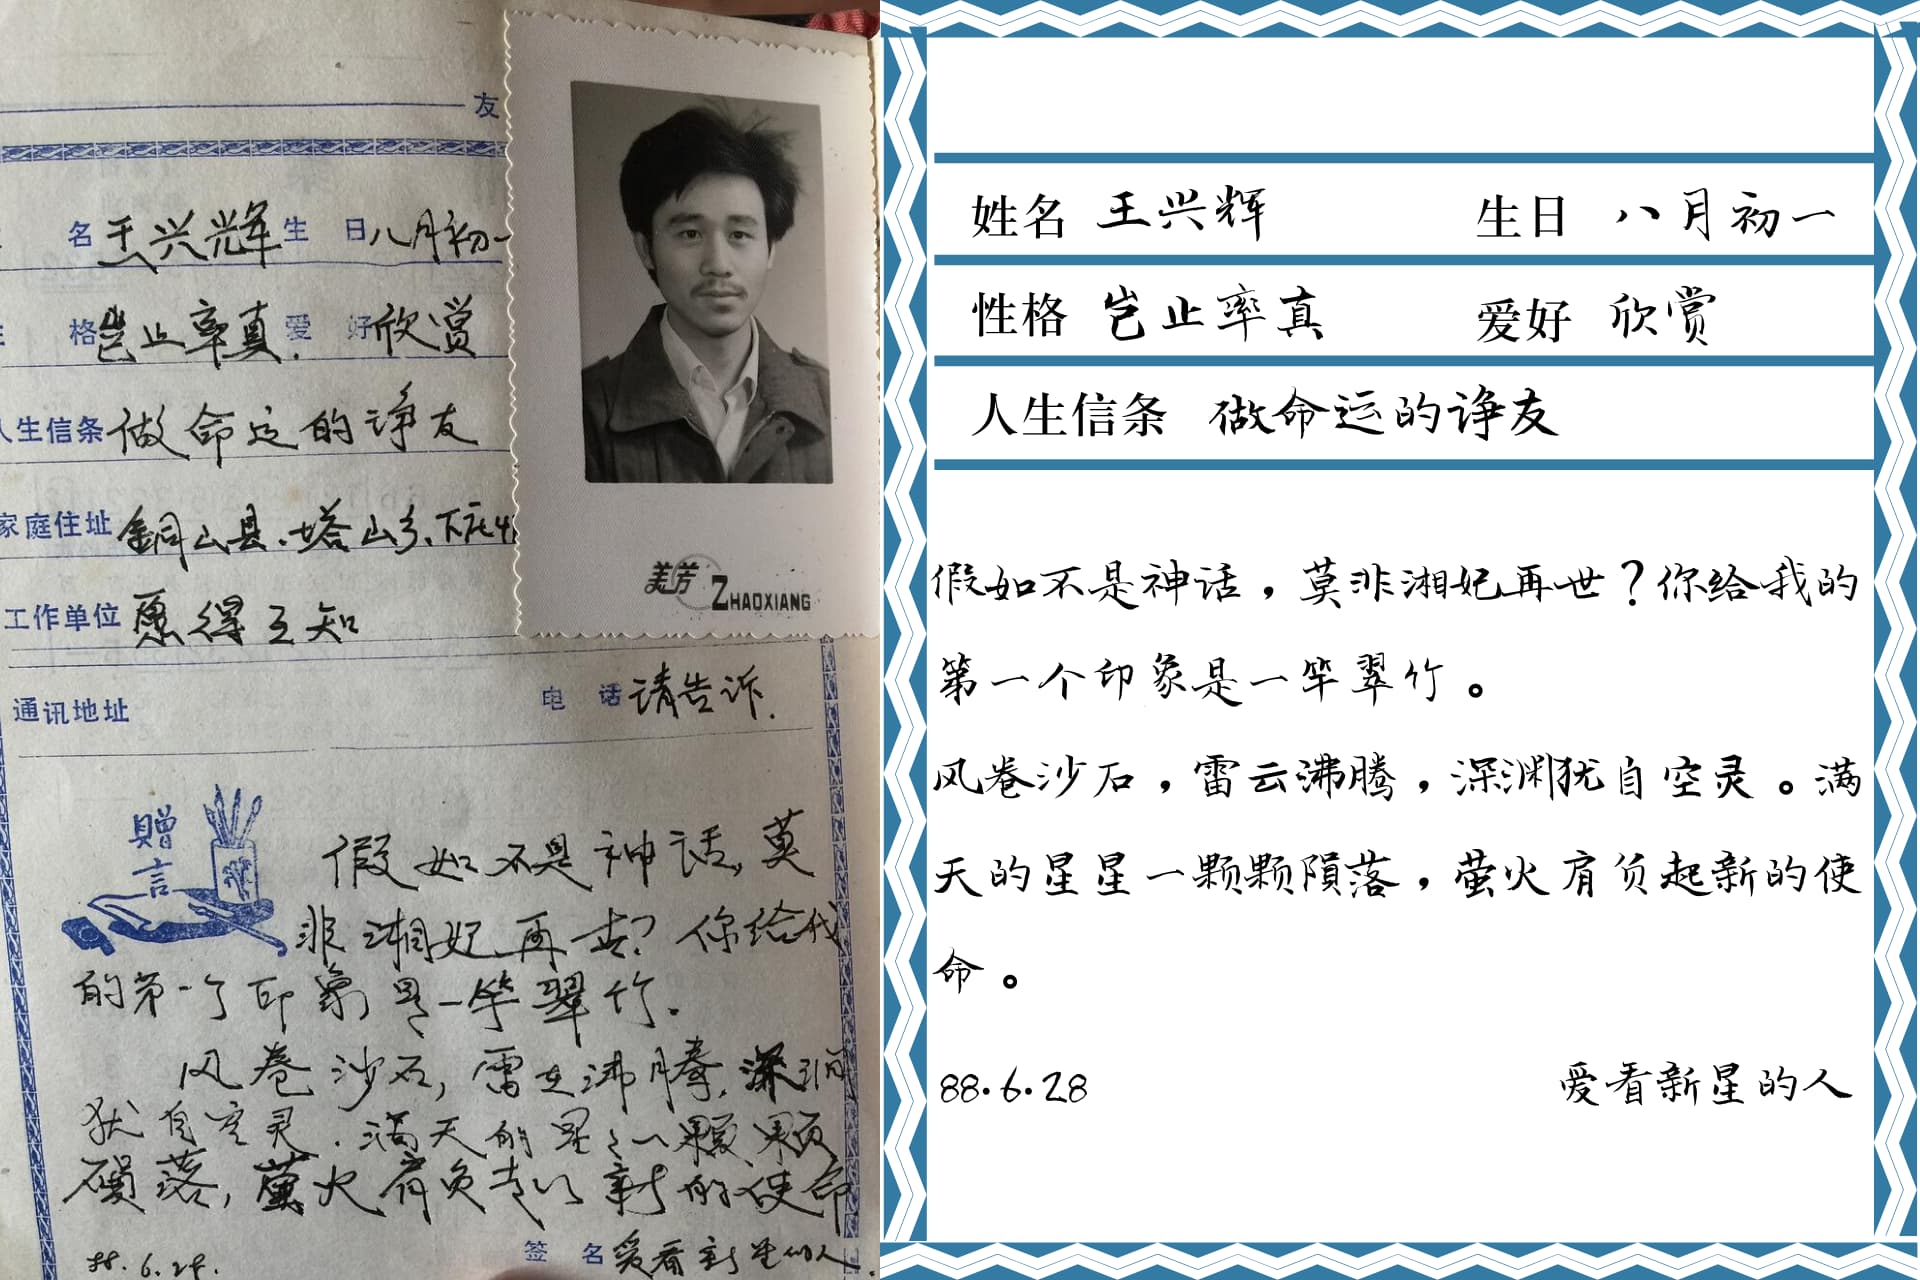 友
名 王兴辉 生日 八月初一
格 岂止率真. 爱好 欣赏
人生信条 做命运的诤友
家庭住址 銅山县.塔山乡.下庄
工作单位 愿得互知
通讯地址 电话 请告诉.
美芳 ZHAOXIANG
赠言
假如不是神话,莫
非湘妃再世?你给我
的第一个印象是一竿翠竹。
风卷沙石,雷云沸腾,深渊
犹自空灵.满天的星星一颗颗
陨落,萤火肩负起新的使命
88.6.28.
签名 爱看新星的人.
姓名 王兴辉 生日 八月初一
性格 岂止率真 爱好 欣赏
人生信条 做命运的诤友
假如不是神话,莫非湘妃再世?你给我的
第一个印象是一竿翠竹。
风卷沙石,雷云沸腾,深渊犹自空灵。满
天的星星一颗颗陨落,萤火肩负起新的使
命。
88.6.28 爱看新星的人